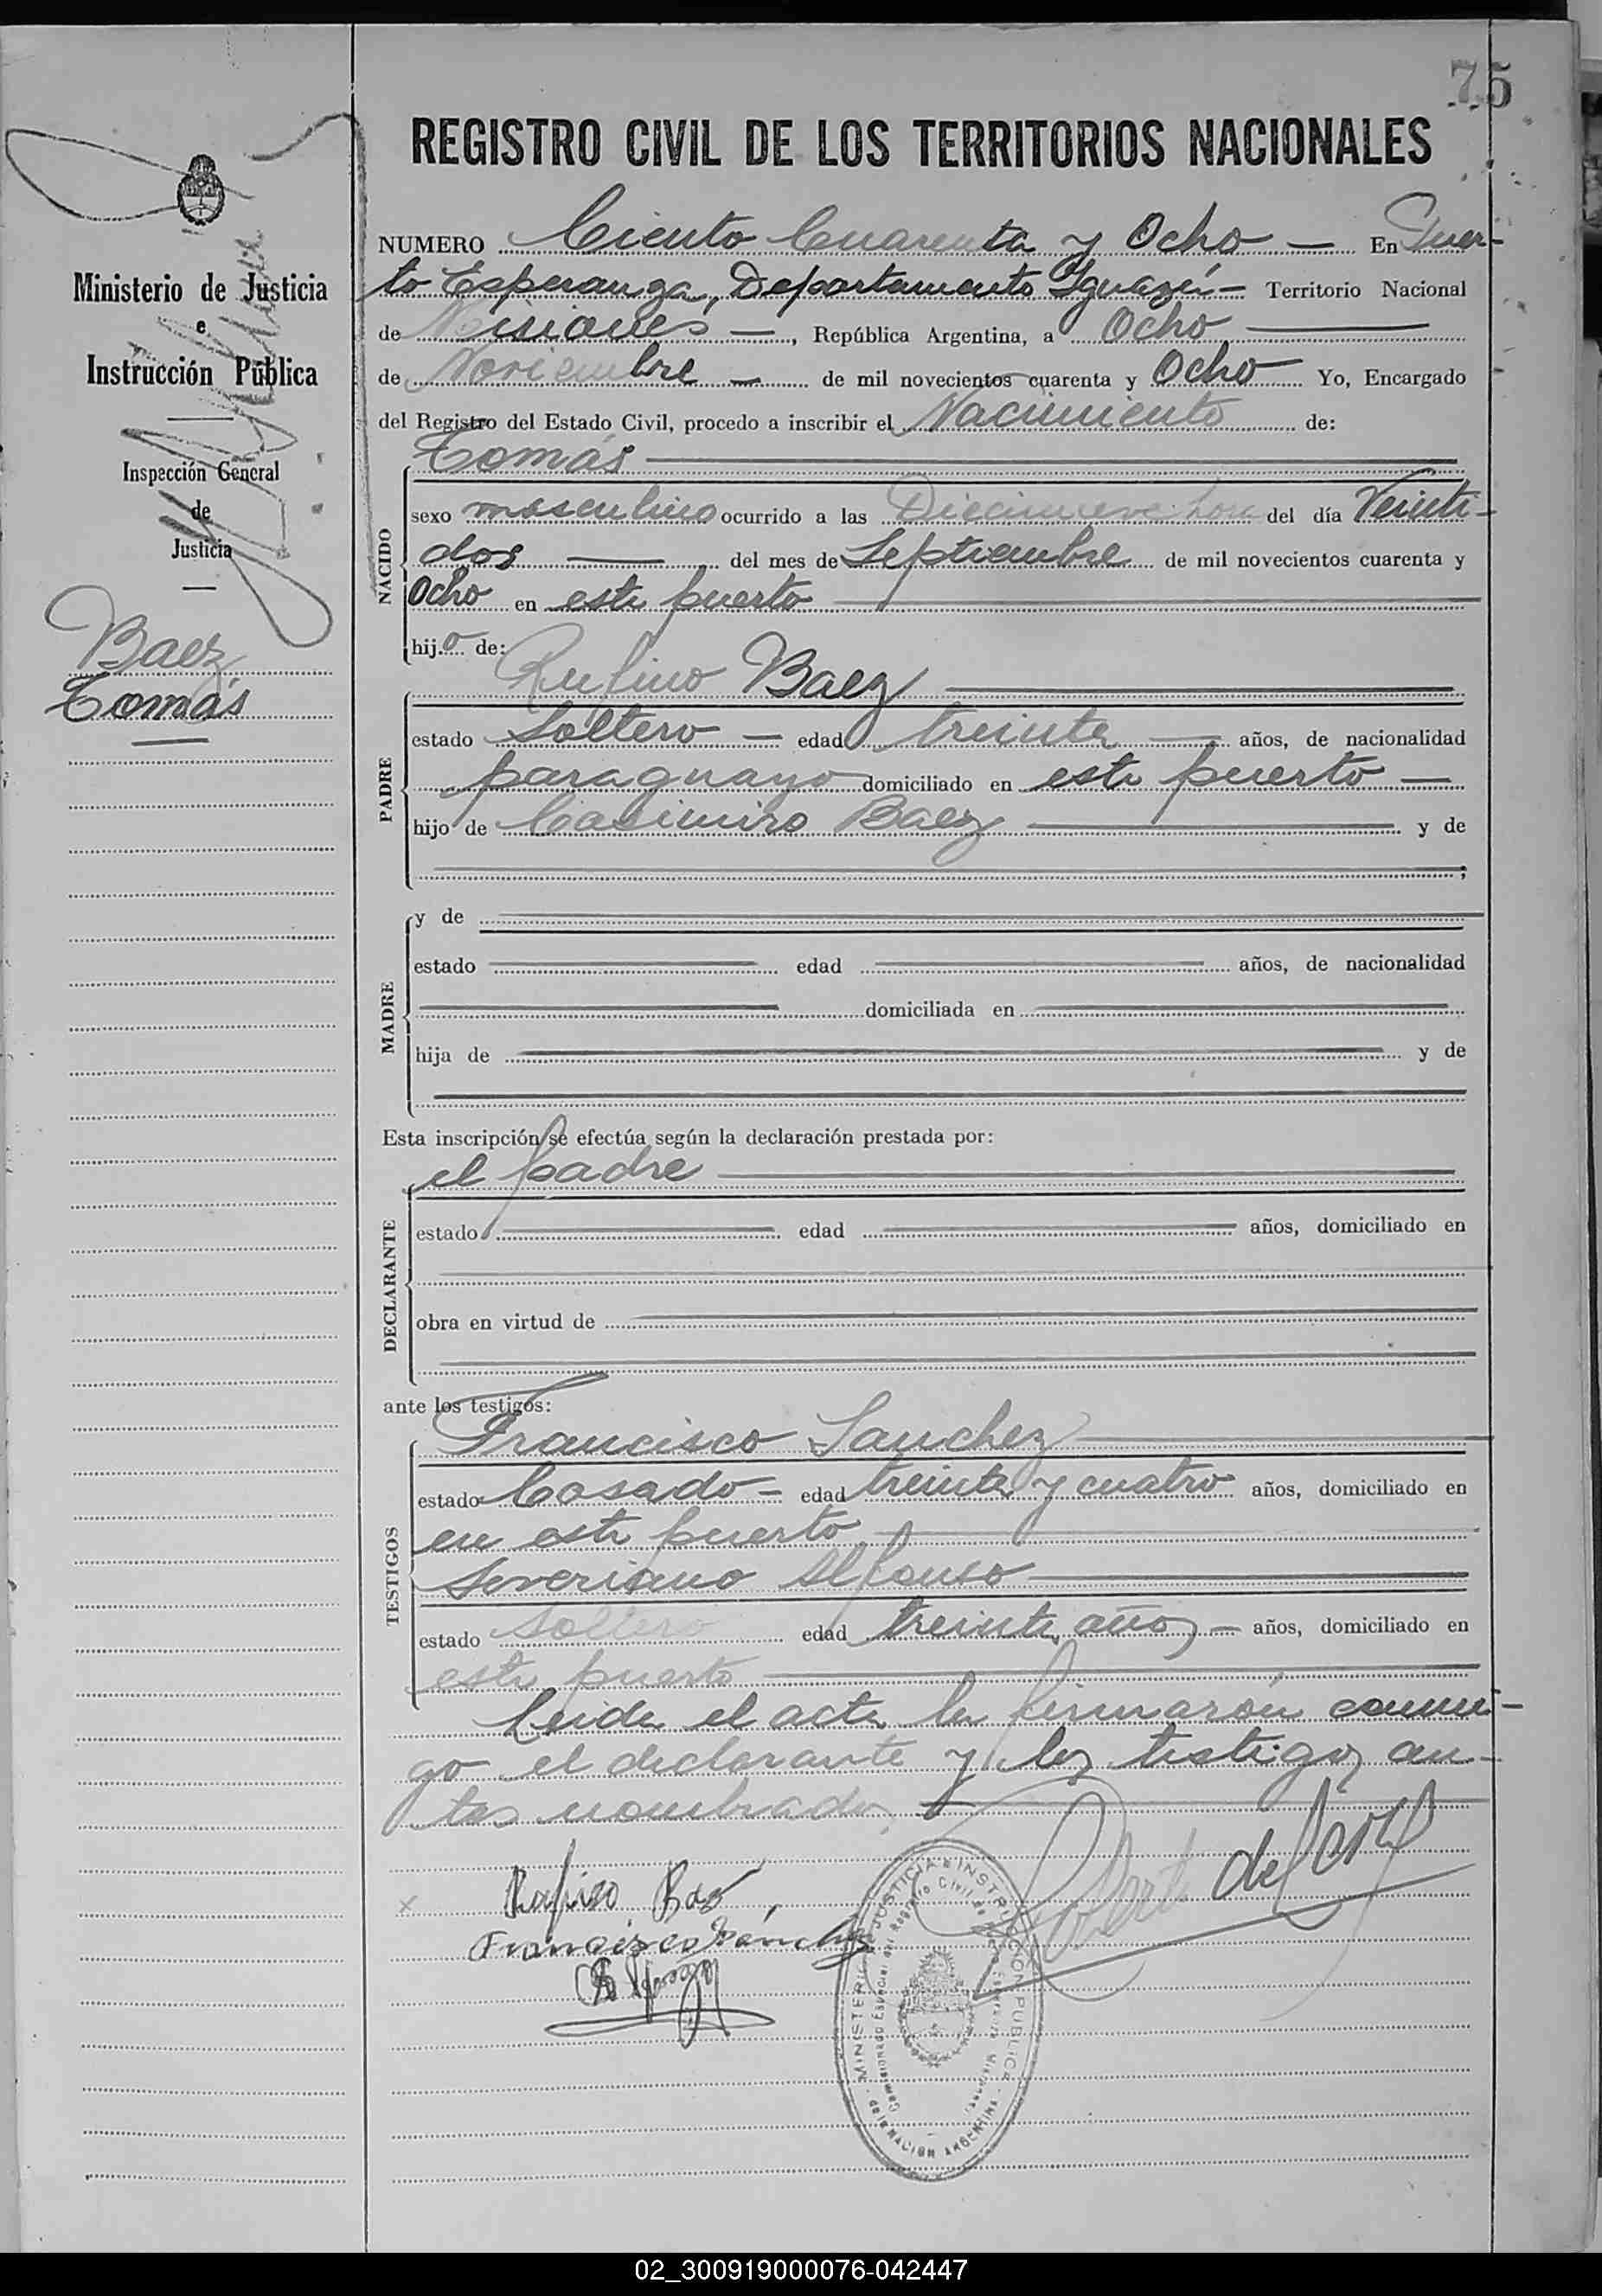 75
REGISTRO CIVIL DE LOS TERRITORIOS NACIONALES
Ministerio de Justicia
e
Instrucción Pública
Inspección General
de
Justicia
Baez
Tomás
NUMERO Ciento Cuarenta y Ocho — En Puer-
to Esperanza, Departamento Iguazú — Territorio Nacional
de Misiones —, República Argentina, a Ocho
de Noviembre — de mil novecientos cuarenta y Ocho Yo, Encargado
del Registro del Estado Civil, procedo a inscribir el Nacimiento de:
Tomás
NACIDO
sexo masculino ocurrido a las Diecinueve hora del día Veinti-
dos — del mes de Septiembre de mil novecientos cuarenta y
Ocho en este puerto
hijo de:
Rufino Baez
PADRE
estado Soltero — edad treinta — años, de nacionalidad
paraguayo domiciliado en este puerto —
hijo de Casimiro Baez y de
;
MADRE
y de
estado edad años, de nacionalidad
domiciliada en
hija de y de
Esta inscripción se efectúa según la declaración prestada por:
el padre
DECLARANTE
estado edad años, domiciliado en
obra en virtud de
ante los testigos:
Francisco Sanchez
TESTIGOS
estado Casado — edad treinta y cuatro años, domiciliado en
en este puerto
Severiano Alfonso
estado Soltero edad treinta años — años, domiciliado en
este puerto
Leida el acta la firmarón conmi-
go el declarante y los testigos an-
tes nombrados
x Rufino Baes
Francisco Sánchez
MINISTERIO DE JUSTICIA E INSTRUCCION PUBLICA
de la NACION ARGENTINA
02_300919000076-042447